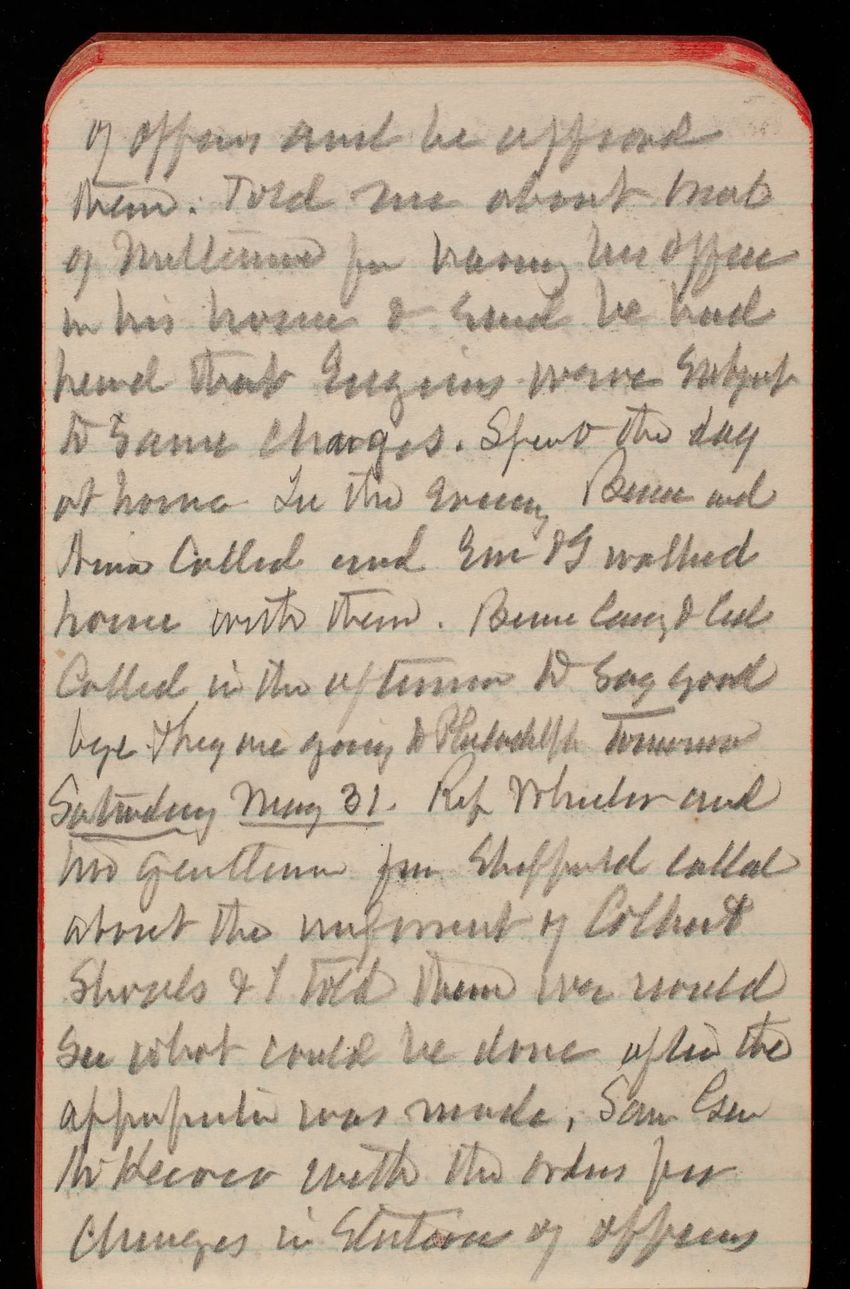 of officers and he approved
them. Told me about trial
of Williams for having his office
in his house & said he had
heard that Engineers were subject
to same charges. Spent the day
at home In the evening Bessie and
called and Em & I walked
home with them. &
Called in the afternoon to say good
bye they are going to Philadelph tomorrow
Saturday May 31. Rep Wheeler and
two gentlemen from Sheffield called
about the improvement of Colbert
Shoals & I told them we would
See what could be done after the
appropriation was made, Saw Gen
McKeever with the orders for
Changes in Stations of officers